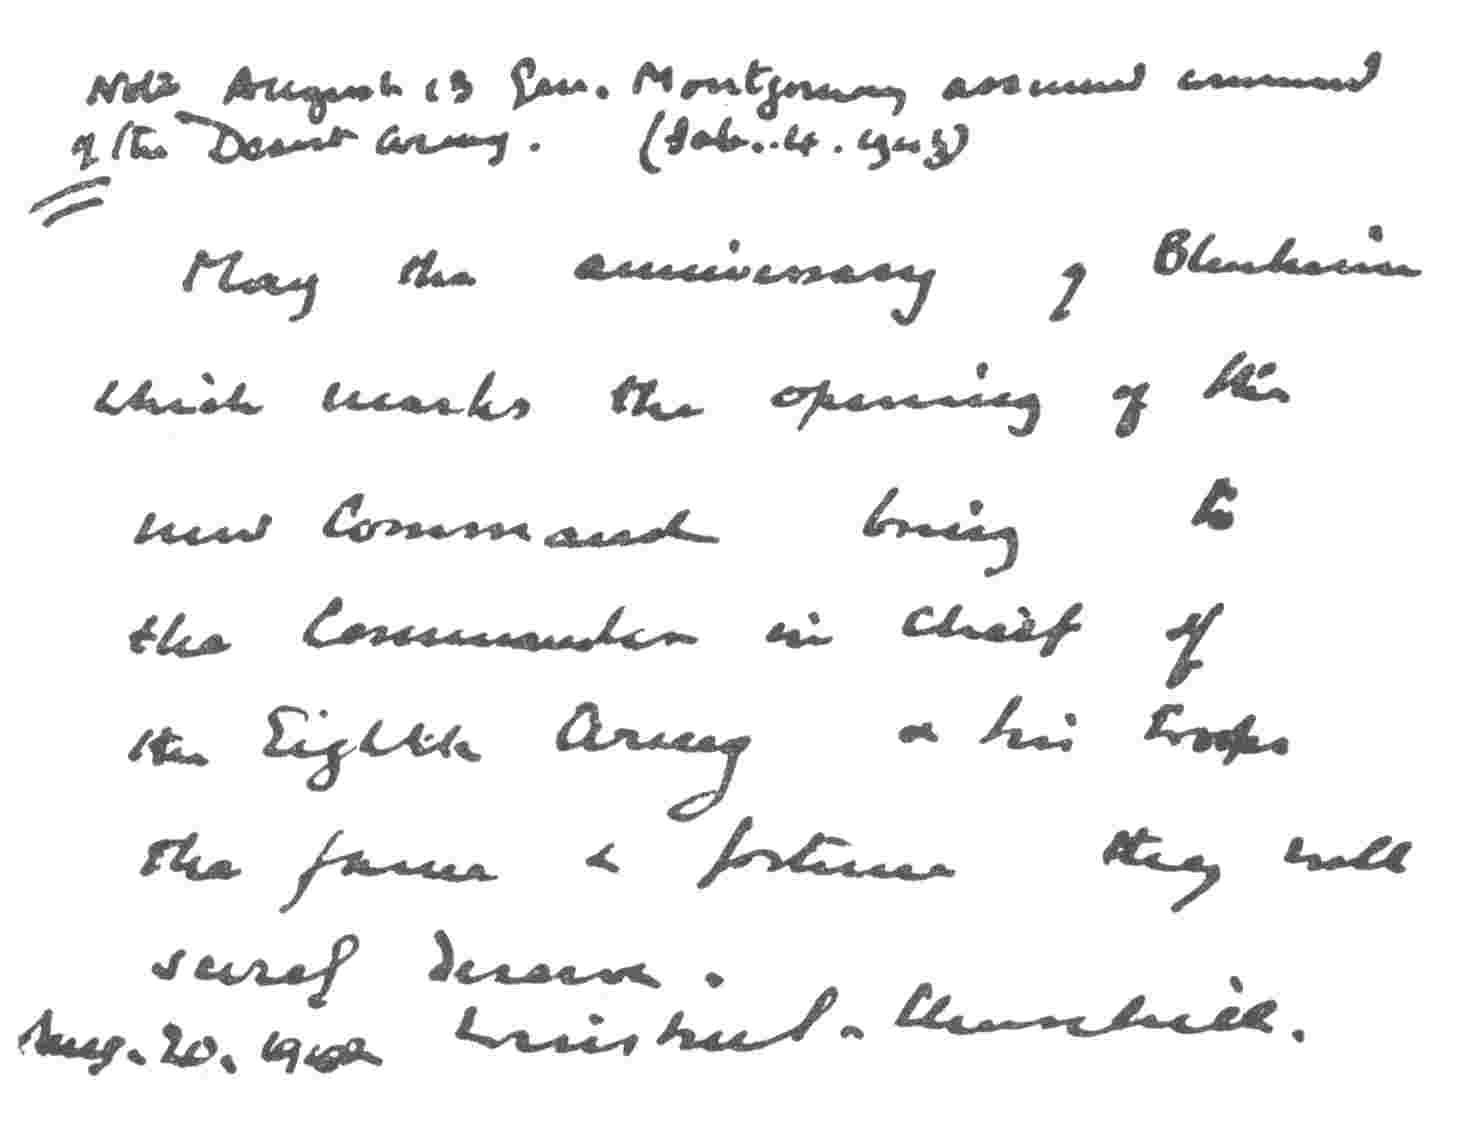 Note August 13 Gen. Montgomery assumed command
of the Desert Army. (Feb. 4. 1943)
May the anniversary of Blenheim
which marks the opening of the
new Command bring to
the Commander in Chief of
the Eighth Army & his troops
the fame & fortune they will
surely deserve.
Aug. 20. 1942 Winston S. Churchill.